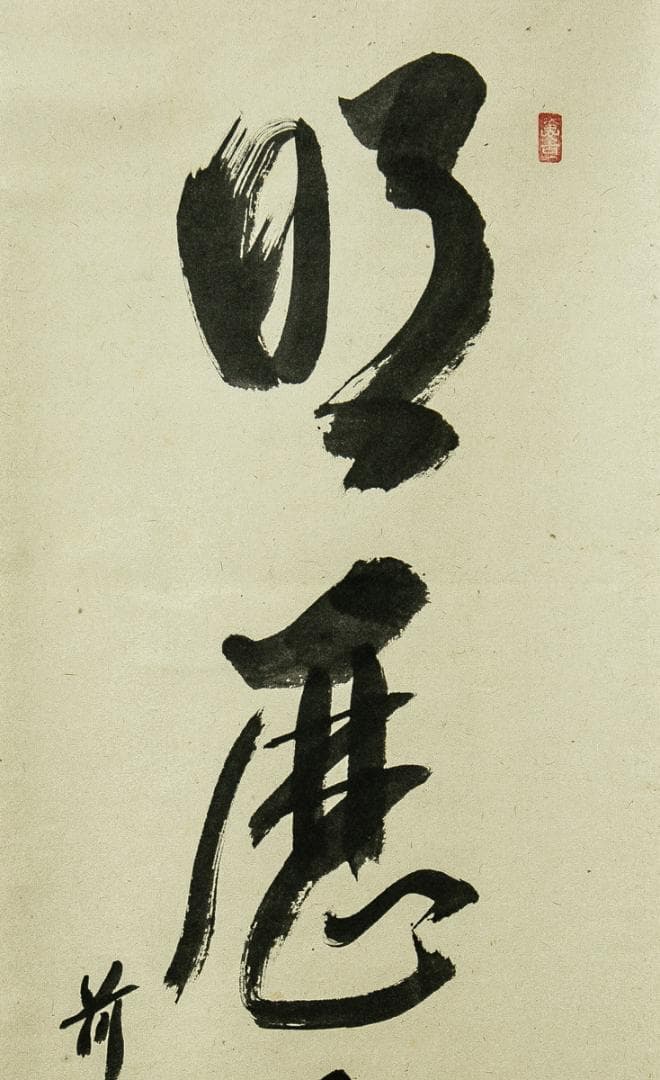 明歴
前